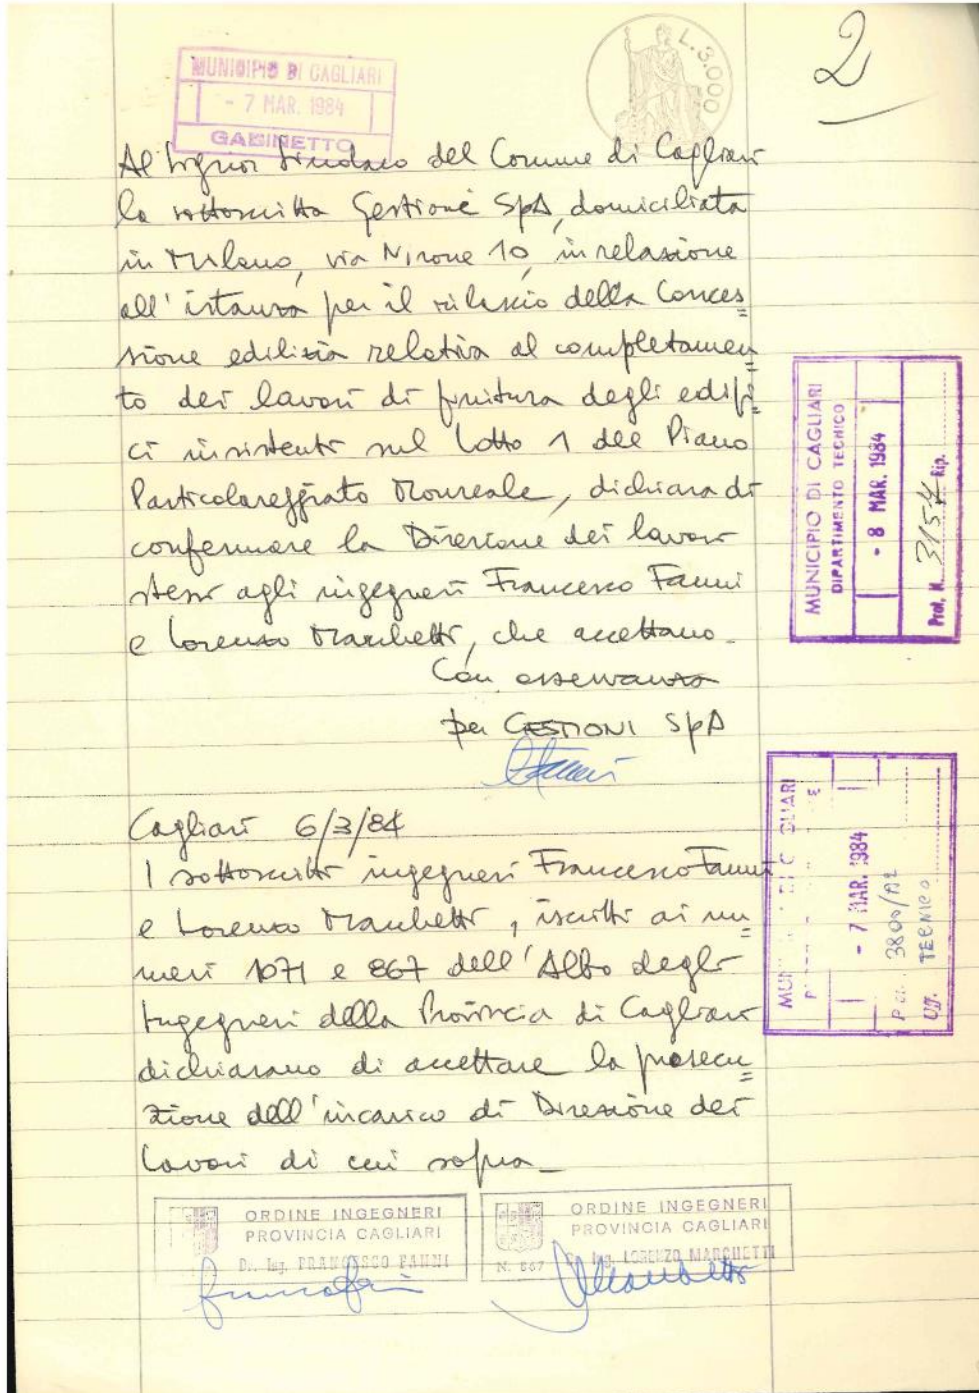 2
L.3.000
MUNICIPIO DI CAGLIARI
- 7 MAR. 1984
GABINETTO
Al Signor Sindaco del Comune di Cagliari
la sottoscritta Gestione SpA, domiciliata
in Milano, via Nirone 10, in relazione
all'istanza per il rilascio della Conces=
sione edilizia relativa al completamen=
to dei lavori di finitura degli edifi=
ci insistenti sul Lotto 1 del Piano
Particolareggiato Monreale, dichiara di
confermare la Direzione dei lavori
stessi agli ingegneri Francesco Fanni
e Lorenzo Marchetti, che accettano_
Con osservanza
per GESTIONI SpA
Cagliari 6/3/84
I sottoscritti ingegneri Francesco Fanni
e Lorenzo Marchetti, iscritti ai nu=
meri 1071 e 867 dell'Albo degli
Ingegneri della Provincia di Cagliari
dichiarano di accettare la prosecu=
zione dell'incarico di Direzione dei
lavori di cui sopra_
MUNICIPIO DI CAGLIARI
DIPARTIMENTO TECNICO
- 8 MAR. 1984
Prot. N. 3154 Rip.
- 7 MAR. 1984
3800/A2
Uff. TECNICO
ORDINE INGEGNERI
PROVINCIA CAGLIARI
Dr. Ing. FRANCESCO FANNI
ORDINE INGEGNERI
PROVINCIA CAGLIARI
Dr. Ing. LORENZO MARCHETTI
N. 867